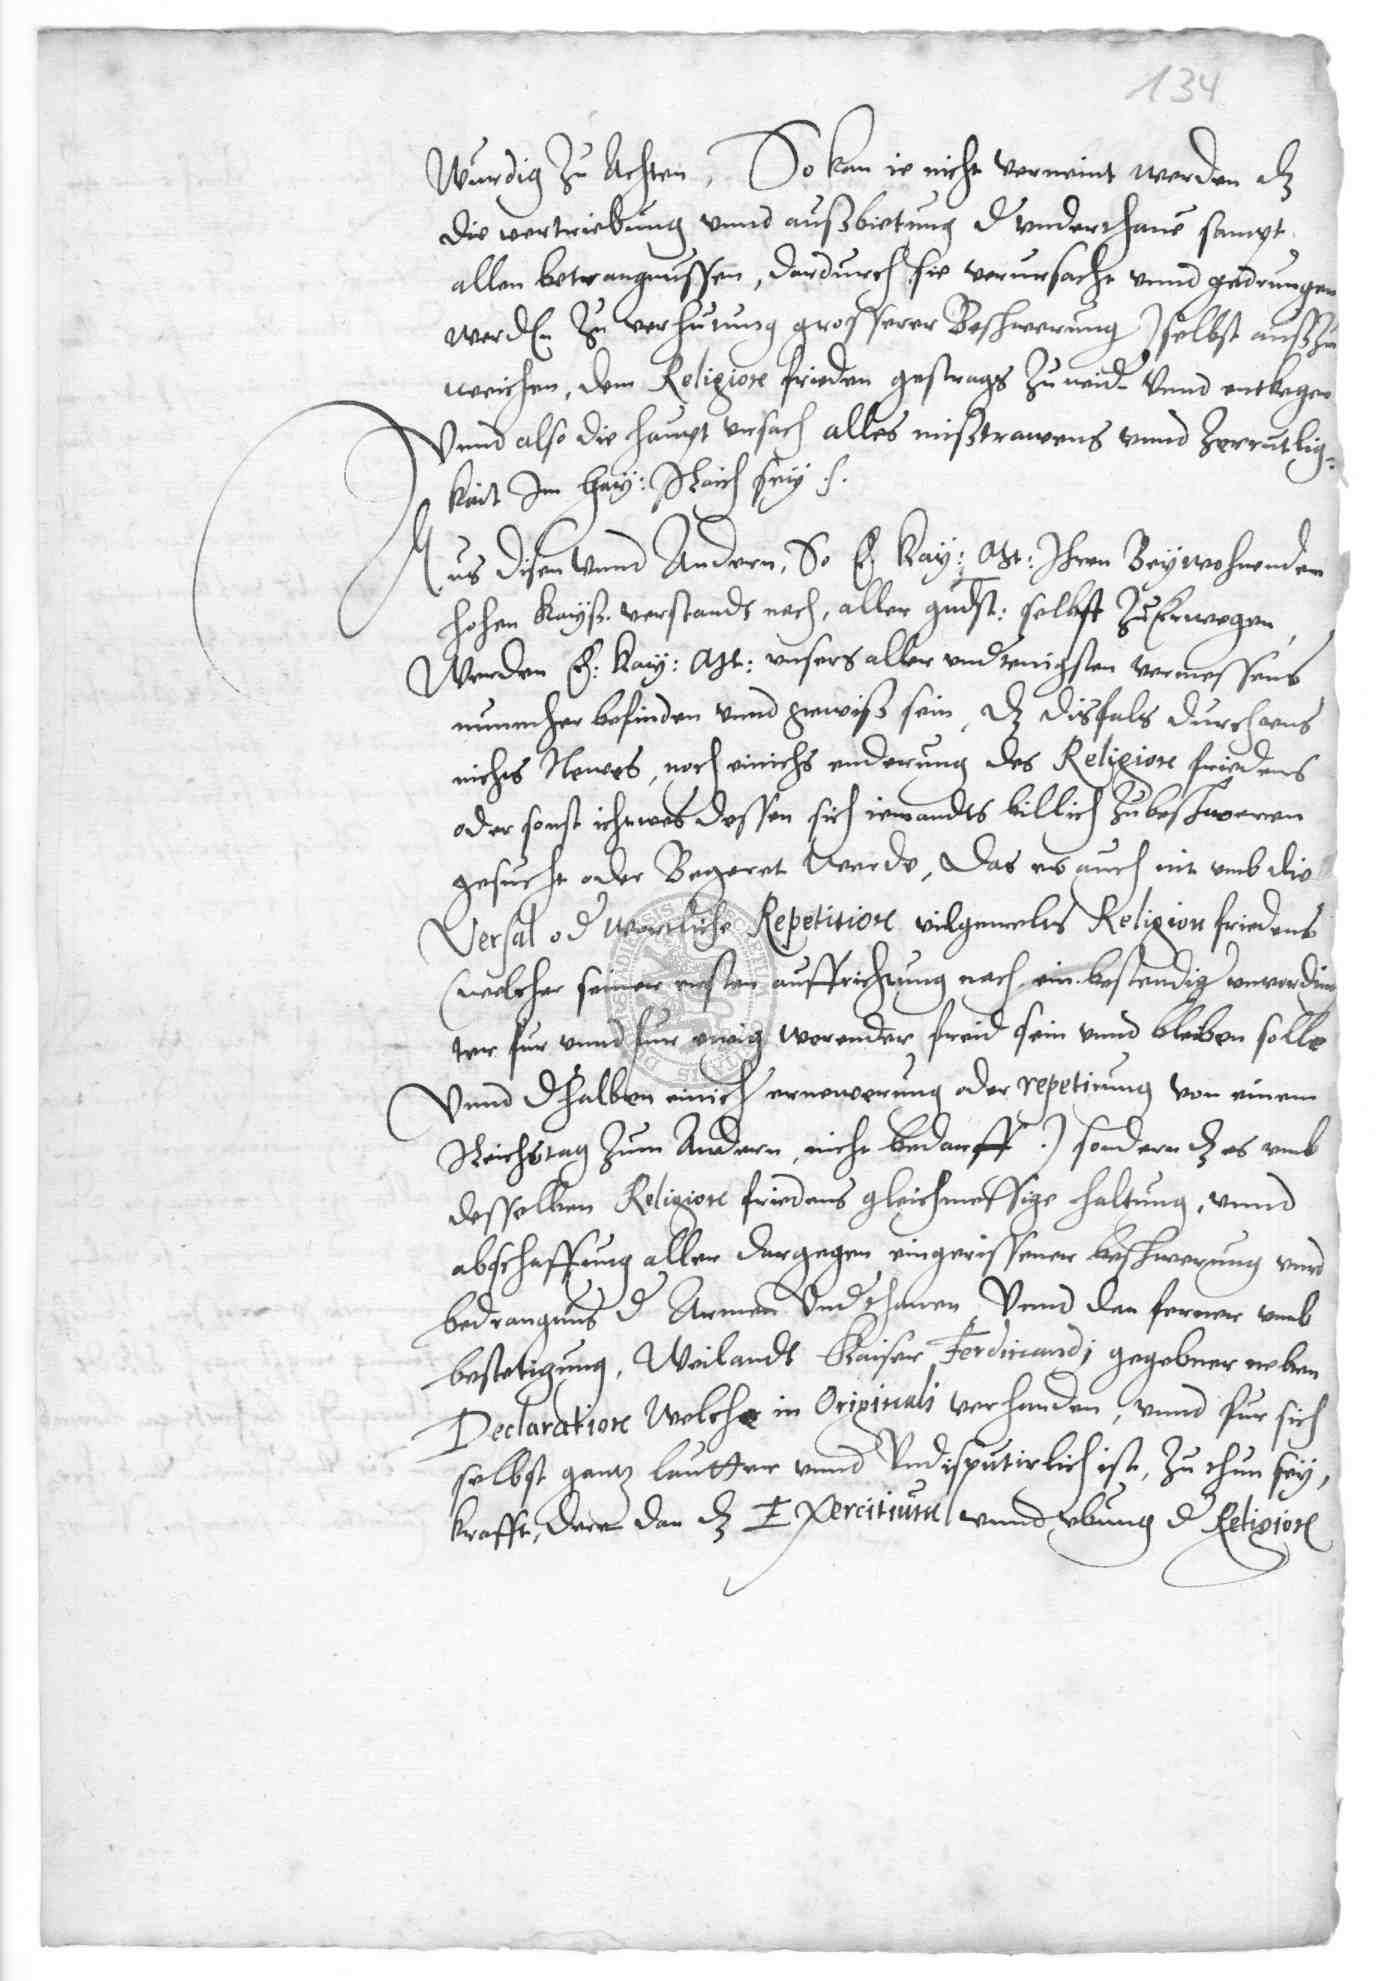 134
Wurdig Zu Achten, So kan ie nicht verneint werden dz
die vertreibung vnnd außbietung d vnderthane sampt
allen betrangnussen, dardurch sie verursacht vnnd gedrungen
werden Zu verhutung grosserer Beschwerung) selbst außzu
weichen, dem Religion frieden gestrags Zuwid. Vnnd entkegen
Vnnd also die haupt vrsach alles mißtrawens vnnd Zerrutlig-
kait Im Hay: Reich sey /.
Aus disen Vnnd Andern, So E. Kay: Mt: Ihren Beywohnenden
hohen Kayß. verstandt nach, aller gndst: selbst Zu Erwegen,
Werden E: Kay: Mt: vnsers aller vndtenigsten vermessens
nunmeher befinden vnnd gewiß sein, dz disfals durch vns
nichts Newes, noch einichs enderung des Religion friedens
oder sonst ichtwes dessen sich iemandts billich Zubeschweren
gesucht oder Begeret werde, Das es auch nit vmb die
Versal od wortliche Repetition vilgemelts Religion friedens
(welcher seiner ersten auffrichtung nach ein bestendig vnverding
ter fur vnnd fur ewig werender freid sein vnnd bleiben solle
Vnnd dhalben einich ernewerung oder repetirung von einem
Reichstag Zum Andern, nicht bedarff.) sondern dz es vmb
desselben Religion friedens gleichmessige haltung, vnnd
abschaffung aller dargegen eingerissener beschwerung vnnd
bedrangnus d Armen Vndthanen, Vnnd dan ferner vmb
bestetigung, Weilandt Kaiser Ferdinandi gegebner neben
Declaration Welche in Originali verhanden, vnnd fur sich
selbst gantz lautter vnnd Vndisputirlich ist, Zu thun sey,
krafft, dere dan dz Exercitium vnnd vbung d Religion